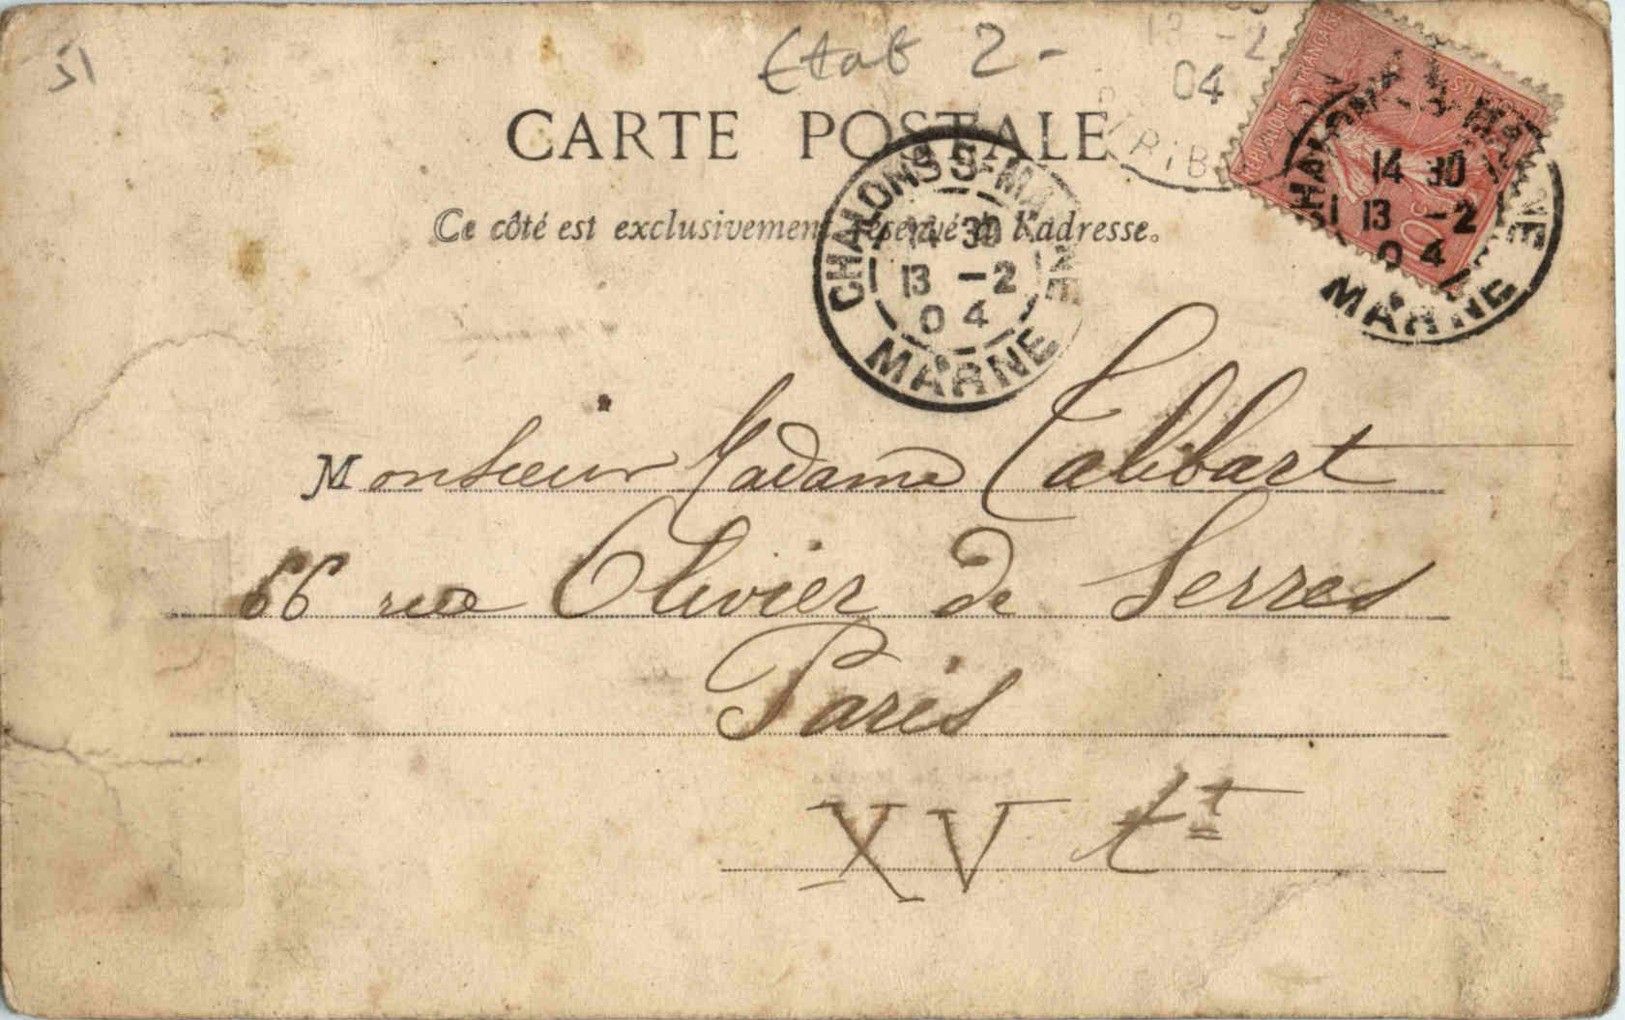 51
Etat 2-
CARTE POSTALE
Ce côté est exclusivement réservé à l'adresse.
13 -2
04
RIB
REPUBLIQUE FRANÇAISE
POSTES
10
CHALONS S-MARNE
14 30
13 -2
04
MARNE
CHALONS S-MARNE
14 30
13 -2
04
MARNE
Monsieur Madame Talibart
66 rue Olivier de Serres
Paris
XV tt